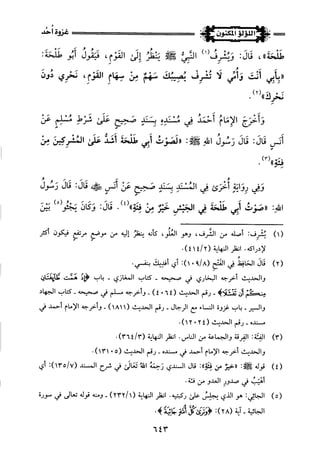 غزوة أُحُد
اللؤلؤ المكنون
طَلْحَةَ»، قَالَ: وَيُشْرِفُ(١) النَّبِيُّ ﷺ يَنْظُرُ إِلَى القَوْمِ، فَيَقُولُ أَبُو طَلْحَةَ:
«بِأَبِي أَنْتَ وَأُمِّي لَا تُشْرِفْ يُصِيبُكَ سَهْمٌ مِنْ سِهَامِ القَوْمِ، نَحْرِي دُونَ
نَحْرِكَ»(٢).
وَأَخْرَجَ الإِمَامُ أَحْمَدُ فِي مُسْنَدِهِ بِسَنَدٍ صَحِيحٍ عَلَى شَرْطِ مُسْلِمٍ عَنْ
أَنَسٍ قَالَ: قَالَ رَسُولُ اللهِ ﷺ: «لَصَوْتُ أَبِي طَلْحَةَ أَشَدُّ عَلَى المُشْرِكِينَ مِنْ
فِئَةٍ»(٣).
وَفِي رِوَايَةٍ أُخْرَى فِي المُسْنَدِ بِسَنَدٍ صَحِيحٍ عَنْ أَنَسٍ ﷺ قَالَ: قَالَ رَسُولُ
اللهِ: «صَوْتُ أَبِي طَلْحَةَ فِي الجَيْشِ خَيْرٌ مِنْ فِئَةٍ»(٤). قَالَ: وَكَانَ يَجْثُو(٥) بَيْنَ
(١) يُشرِف: أصله من الشرف، وهو العُلُو، كأنه ينظرُ إليه من موضعٍ مرتفعٍ فيكون أكثر
لإدراكه. انظر النهاية (٤١٤/٢).
(٢) قَالَ الحَافِظُ فِي الفَتْحِ (١٠٩/٨): أي أَفْدِيكَ بنفسي.
والحديث أخرجه البخاري في صحيحه ـ كتاب المغازي ـ باب ﴿إِذْ هَمَّت طَّآئِفَتَانِ
مِنكُمْ أَن تَفْشَلَا﴾ ـ رقم الحديث (٤٠٦٤) ـ وأخرجه مسلم في صحيحه ـ كتاب الجهاد
والسير ـ باب غزوة النساء مع الرجال ـ رقم الحديث (١٨١١) ـ وأخرجه الإمام أحمد في
مسنده ـ رقم الحديث (١٢٠٢٤).
(٣) الفِئَةُ: الفِرقة والجماعة من الناس. انظر النهاية (٣٦٤/٣).
والحديث أخرجه الإمام أحمد في مسنده ـ رقم الحديث (١٣١٠٥).
(٤) قوله ﷺ: «خَيرٌ من فِئَةٍ»: قال السندي رَحِمَهُ اللهُ تَعَالَى في شرح المسند (١٣٥/٧): أي
أَهْيَبُ في صدورِ العدو من فئة.
(٥) الجاثِي: هو الذي يجلِسُ على ركبتيه. انظر النهاية (٢٣٢/١) ـ ومنه قوله تعالى في سورة
الجاثية ـ آية (٢٨): ﴿وَتَرَىٰ كُلَّ أُمَّةٍ جَاثِيَةً﴾.
٦٤٣